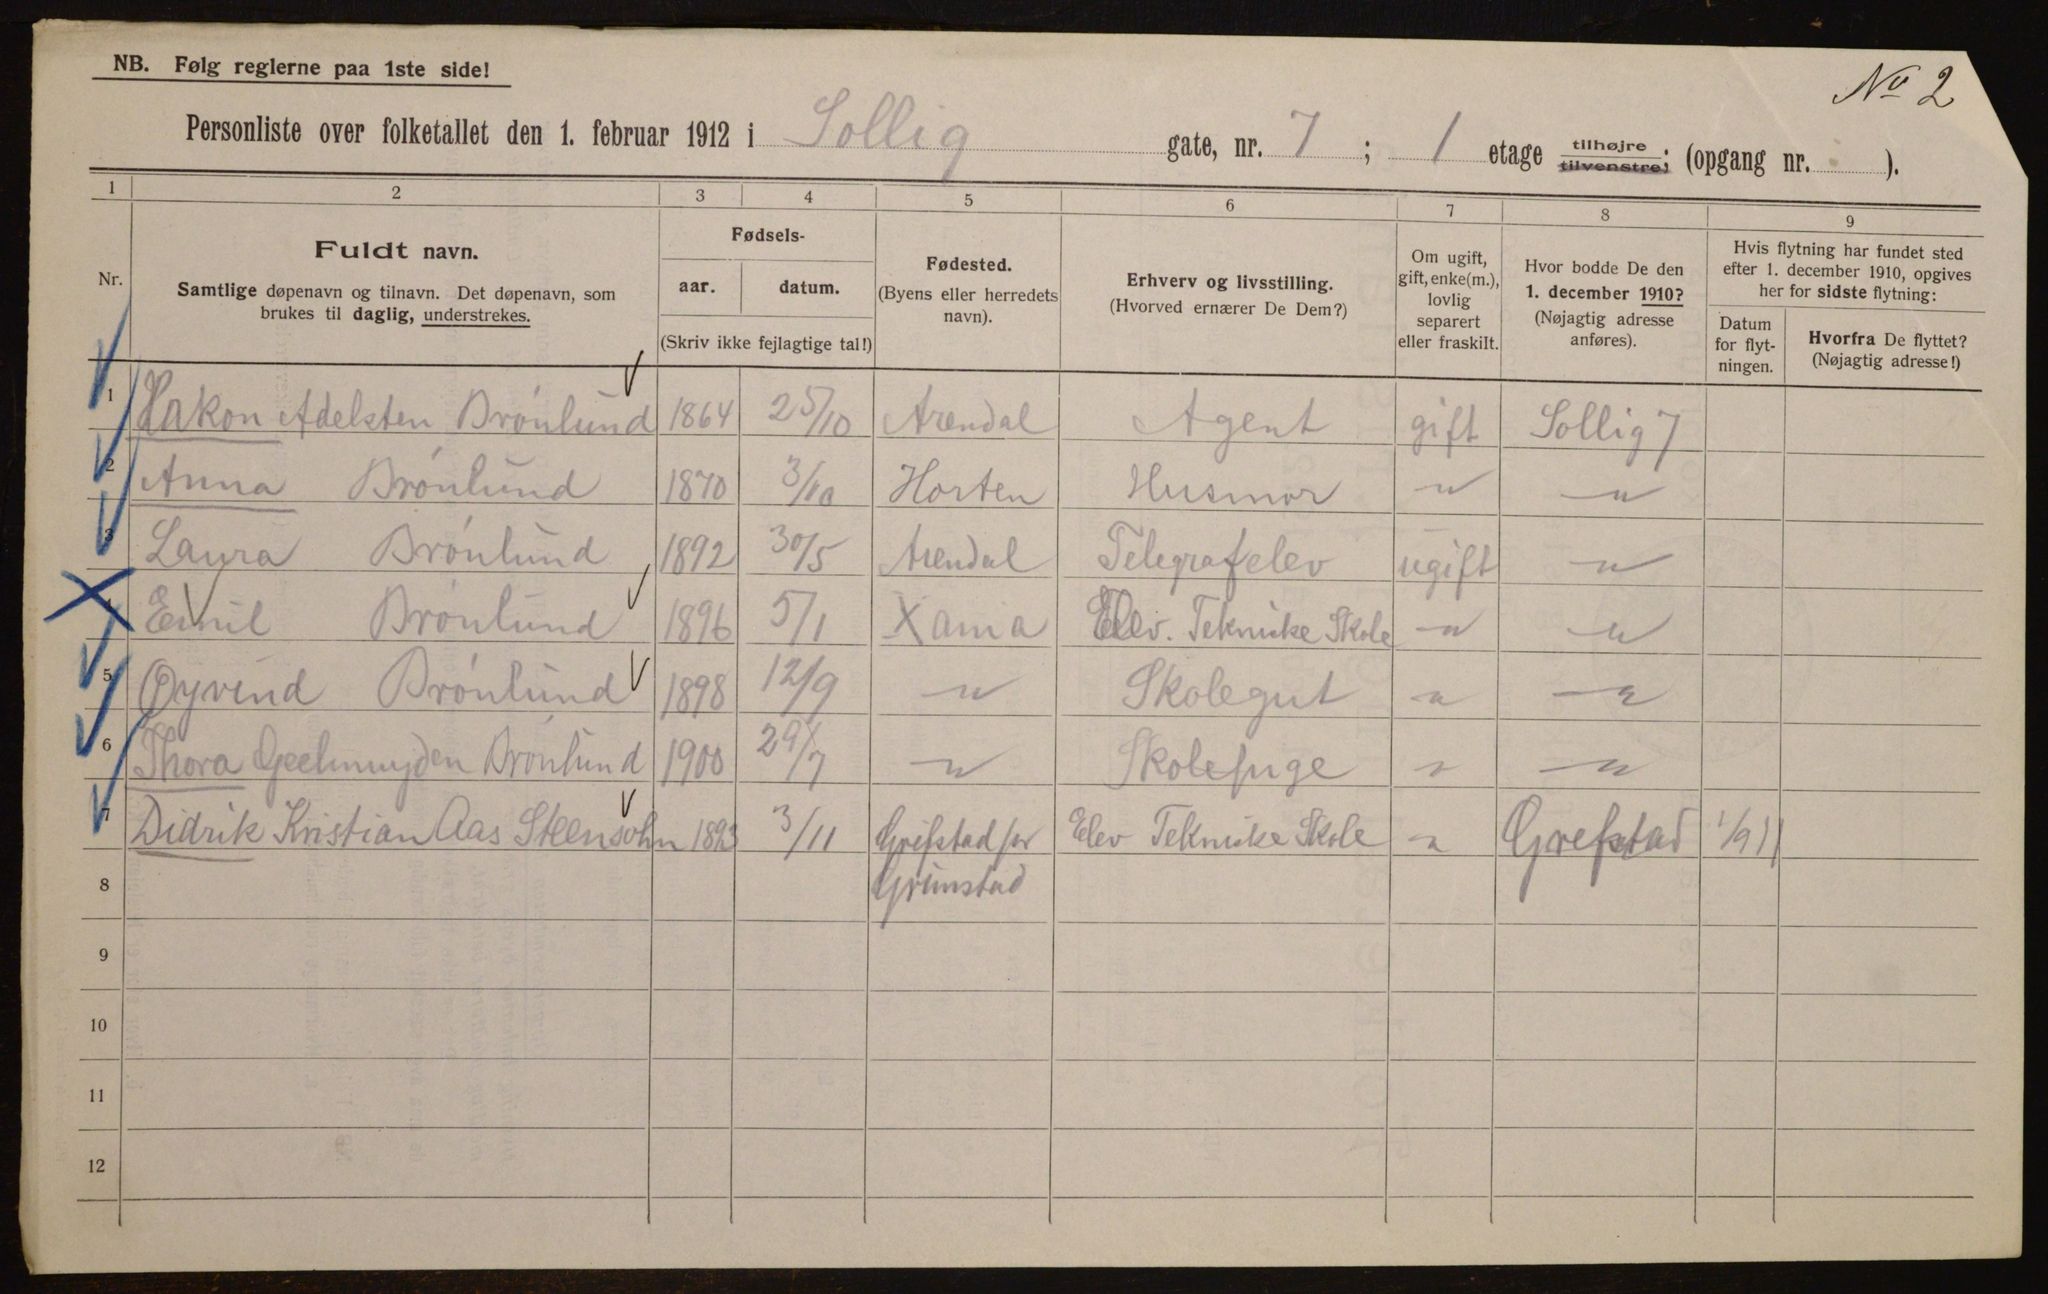 NB. Følg reglerne paa 1ste side!
Nº 2
Personliste over folketallet den 1. februar 1912 i Sollig gate, nr. 7; 1 etage tilhøjre tilvenstre; (opgang nr. ).
1 2 3 4 5 6 7 8 9
Nr.
Fuldt navn.
Samtlige døpenavn og tilnavn. Det døpenavn, som
brukes til daglig, understrekes.
Fødsels-
aar. datum.
(Skriv ikke fejlagtige tal!)
Fødested.
(Byens eller herredets
navn).
Erhverv og livsstilling.
(Hvorved ernærer De Dem?)
Om ugift,
gift, enke(m.),
lovlig
separert
eller fraskilt.
Hvor bodde De den
1. december 1910?
(Nøjagtig adresse
anføres).
Hvis flytning har fundet sted
efter 1. december 1910, opgives
her for sidste flytning:
Datum
for flyt-
ningen.
Hvorfra De flyttet?
(Nøjagtig adresse!)
1 Hakon Adelsten Brónlund 1864 25/10 Arendal Agent gift Sollig 7
2 Anna Brónlund 1870 3/10 Horten Husmor " "
3 Laura Brónlund 1892 30/5 Arendal Telegrafelev ugift "
4 Emil Brónlund 1896 5/1 Xania Elev. Tekniske Skole " "
5 Øyvind Brónlund 1898 12/9 " Skolegut " "
6 Thora Geelmuyden Brónlund 1900 29/7 " Skolepige " "
7 Didrik Kristian Aas Steensohn 1893 3/11 Grefstad pr Elev Tekniske Skole " Grefstad 1/9 11
8 Grimstad
9
10
11
12